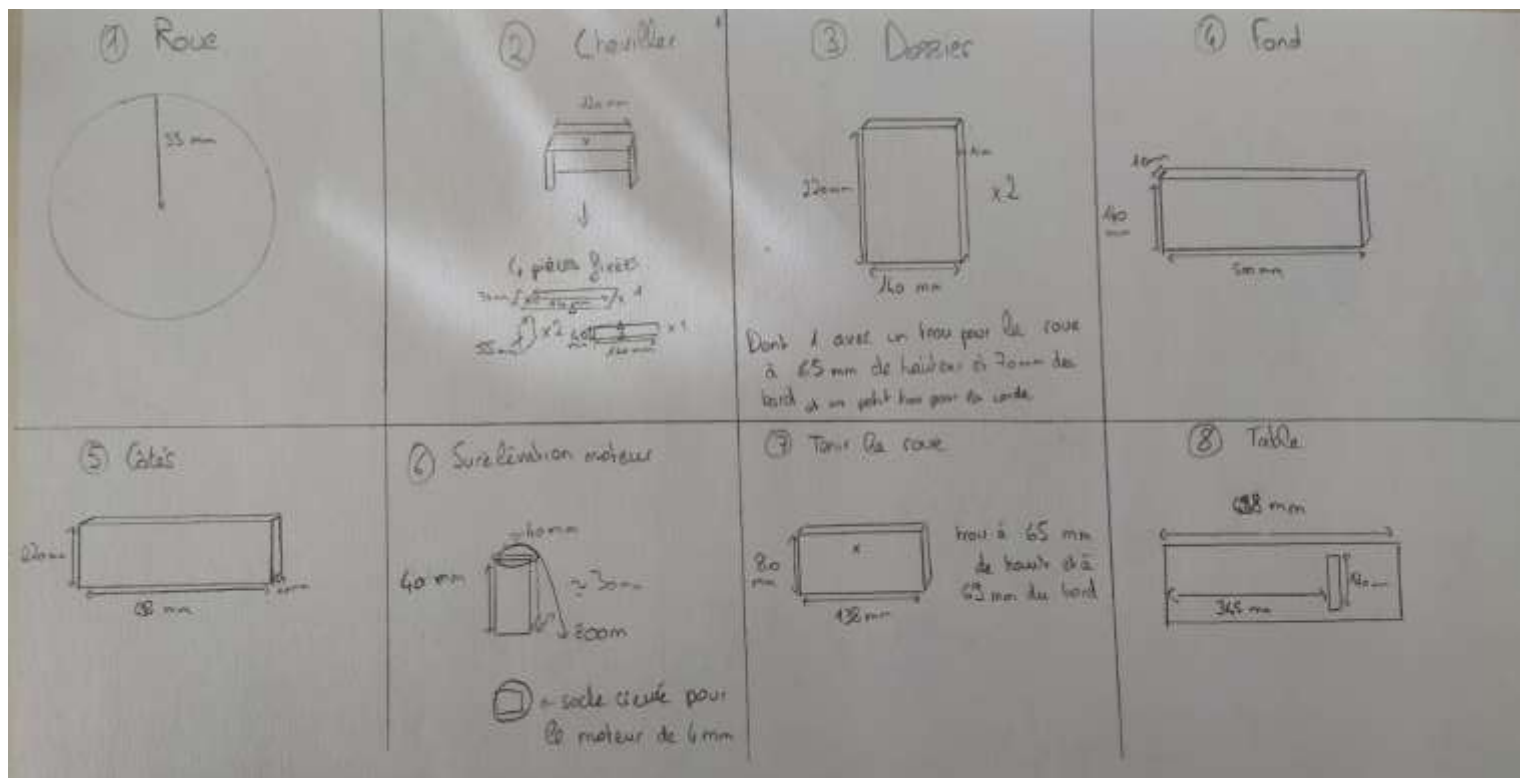 ① Roue
55 mm
② Cheviller
120 mm
x
4 pièces fixées
x 1
55 mm
x2
x 1
140 mm
③ Dossier
220 mm
x2
140 mm
Dont 1 avec un trou pour la roue
à 65 mm de hauteur et 70 mm du
bord et un petit trou pour la corde
④ Fond
140
mm
500 mm
⑤ Côtés
220 mm
⑥ Surélévation moteur
40 mm
40 mm
≈ 30 mm
= socle creusé pour
le moteur de 4 mm
⑦ Tenir la roue
80
mm
x
138 mm
trou à 65 mm
de haut et à
69 mm du bord
⑧ Table
mm
345 mm